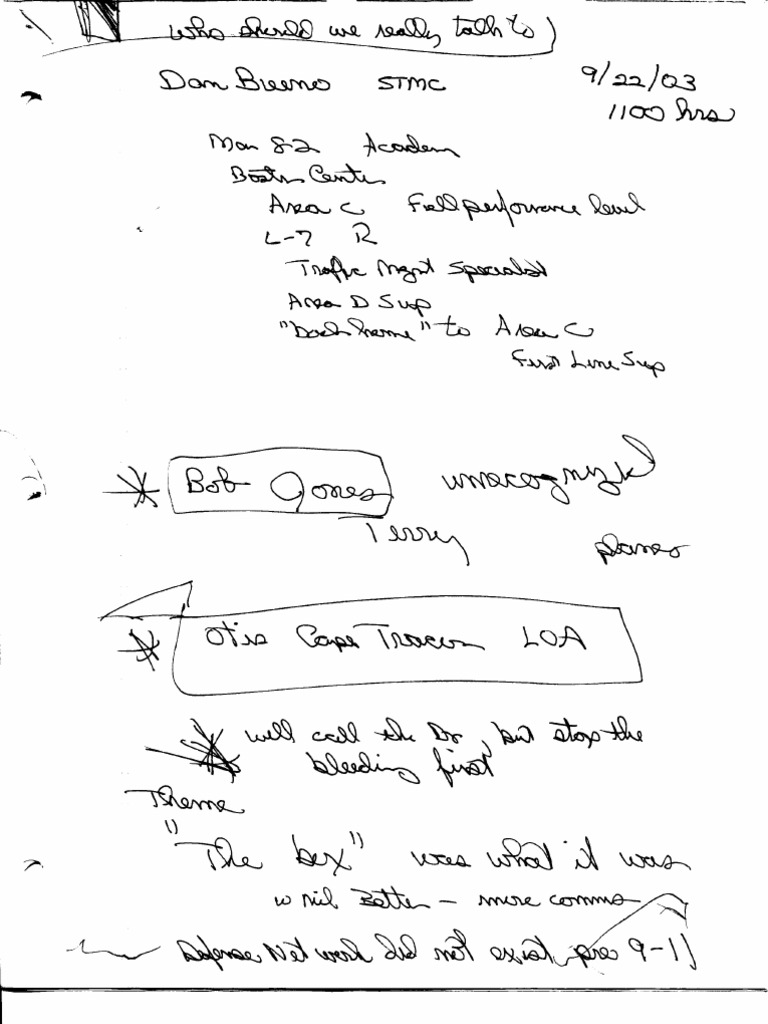 who should we really talk to
Dan Bueno STMC
9/22/03
1100 hrs
Mar 82 Academy
Boston Center
Area C Full performance level
L-7 R
Traffic Mgmt Specialist
Area D Sup
"back home" to Area C
First Line Sup
Bob Jones unrecognized
Terry planes
Otis Cape Tracon LOA
will call the Dr, but stop the
bleeding first
Theme
"The box" was what it was
Better - more comms
Defense Network did not exist pre 9-11